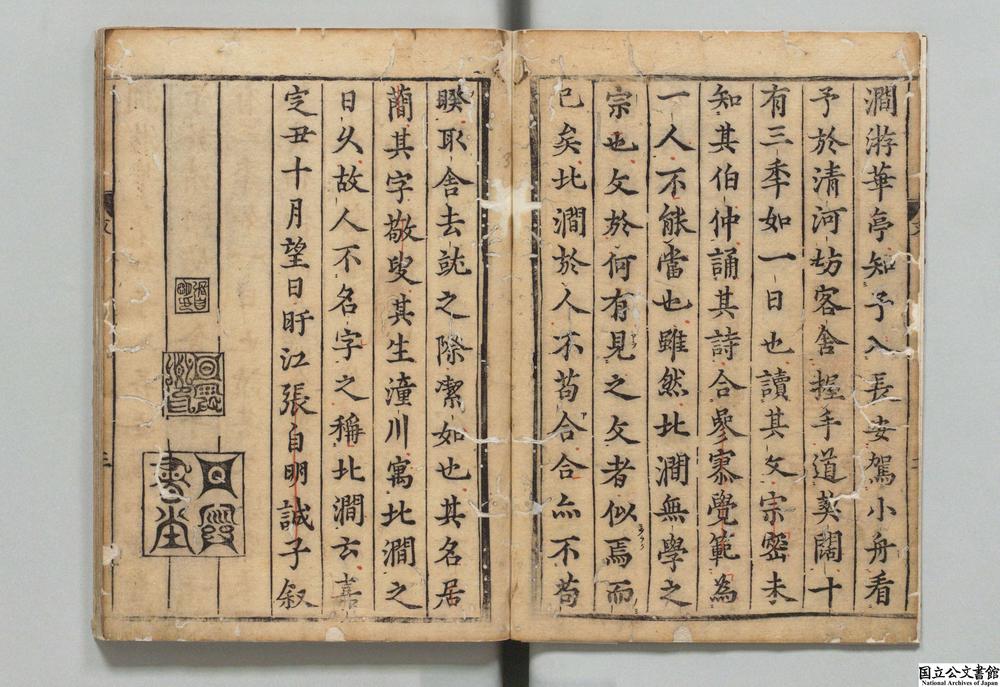 澗游華亭知予入長安駕小舟看
予於清河坊客舍握手道契闊十
有三季如一日也讀其文宗密未
知其伯仲誦其詩合參寥覺範為
一人不能當也雖然北澗無學之
宗也文於何有見之文者似焉而
已矣北澗於人不苟合合亦不苟
睽取舍去就之際潔如也其名居
蕑其字敬叟其生潼川寓北澗之
日久故人不名字之稱北澗云嘉
定丑十月望日盱江張自明誠子叙
国立公文書館
National Archives of Japan